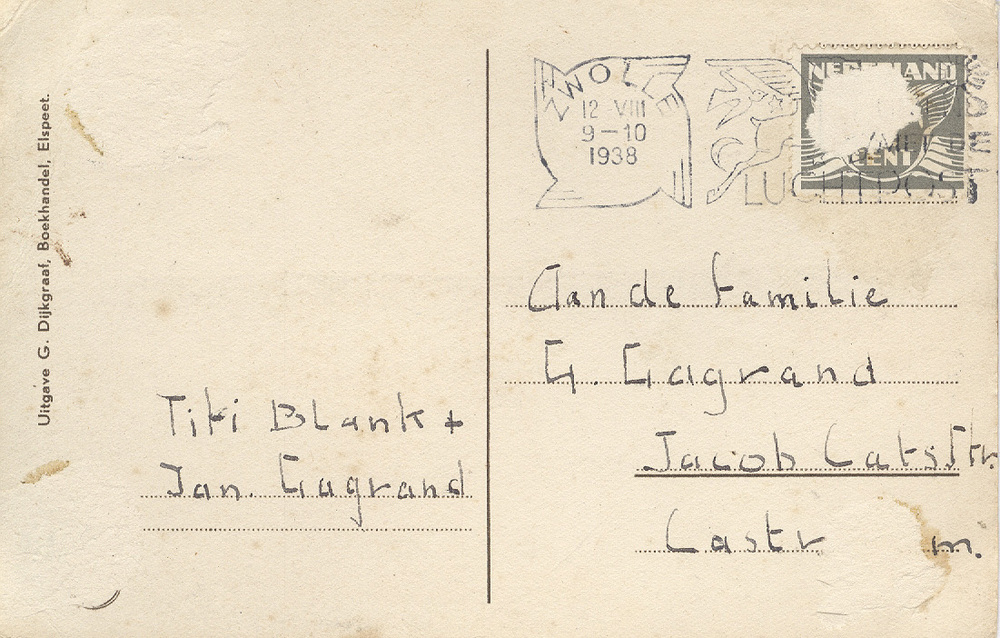 Uitgave G. Dijkgraaf, Boekhandel, Elspeet.
ZWOLLE
12 VIII
9-10
1938
NEDERLAND
CENT
MET
LUCHTPOST
Aan de familie
G. Gagrand
Jacob CatsStr.
Castr m.
Titi Blank +
Jan. Gagrand